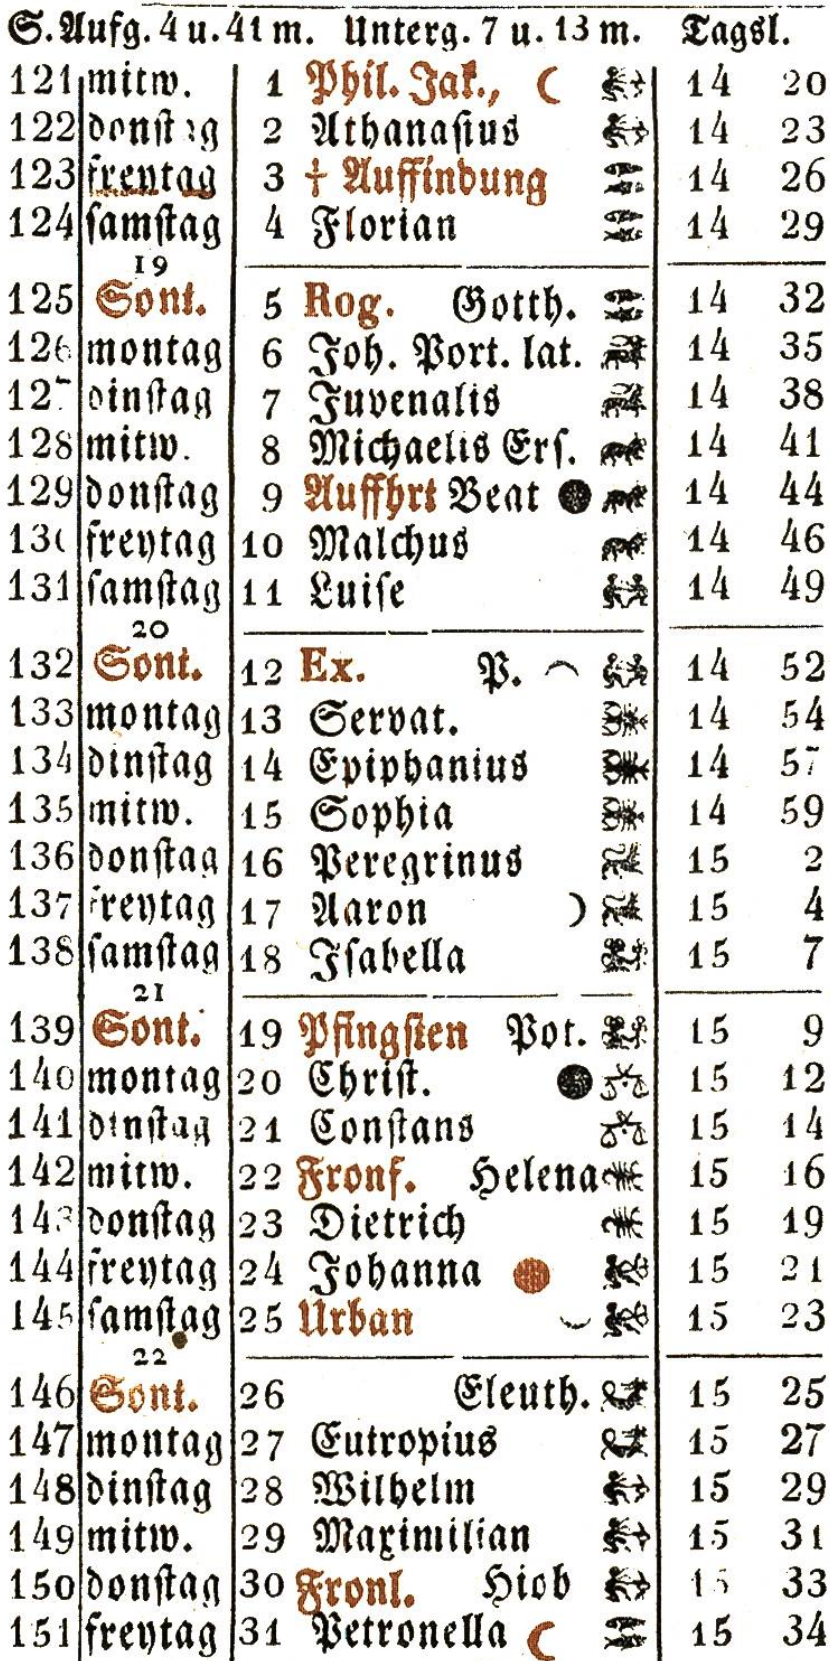 S. Aufg. 4 u. 41 m. Unterg. 7 u. 13 m. Tagsl.
121 mitw. 1 Phil. Jak., ☾ 14 20
122 donstag 2 Athanaſius 14 23
123 freytag 3 † Auffindung 14 26
124 ſamſtag 4 Florian 14 29
19
125 Sont. 5 Rog. Gotth. 14 32
126 montag 6 Joh. Port. lat. 14 35
127 dinſtag 7 Juvenalis 14 38
128 mitw. 8 Michaelis Erſ. 14 41
129 donſtag 9 Auffhrt Beat 14 44
130 freytag 10 Malchus 14 46
131 ſamſtag 11 Luiſe 14 49
20
132 Sont. 12 Ex. P. 14 52
133 montag 13 Servat. 14 54
134 dinſtag 14 Epiphanius 14 57
135 mitw. 15 Sophia 14 59
136 donſtag 16 Peregrinus 15 2
137 freytag 17 Aaron ☽ 15 4
138 ſamſtag 18 Iſabella 15 7
21
139 Sont. 19 Pfingſten Pot. 15 9
140 montag 20 Chriſt. 15 12
141 dinſtag 21 Conſtans 15 14
142 mitw. 22 Fronf. Helena 15 16
143 donſtag 23 Dietrich 15 19
144 freytag 24 Johanna 15 21
145 ſamſtag 25 Urban 15 23
22
146 Sont. 26 Eleuth. 15 25
147 montag 27 Eutropius 15 27
148 dinſtag 28 Wilhelm 15 29
149 mitw. 29 Maximilian 15 31
150 donſtag 30 Fronl. Hiob 15 33
151 freytag 31 Petronella ☾ 15 34